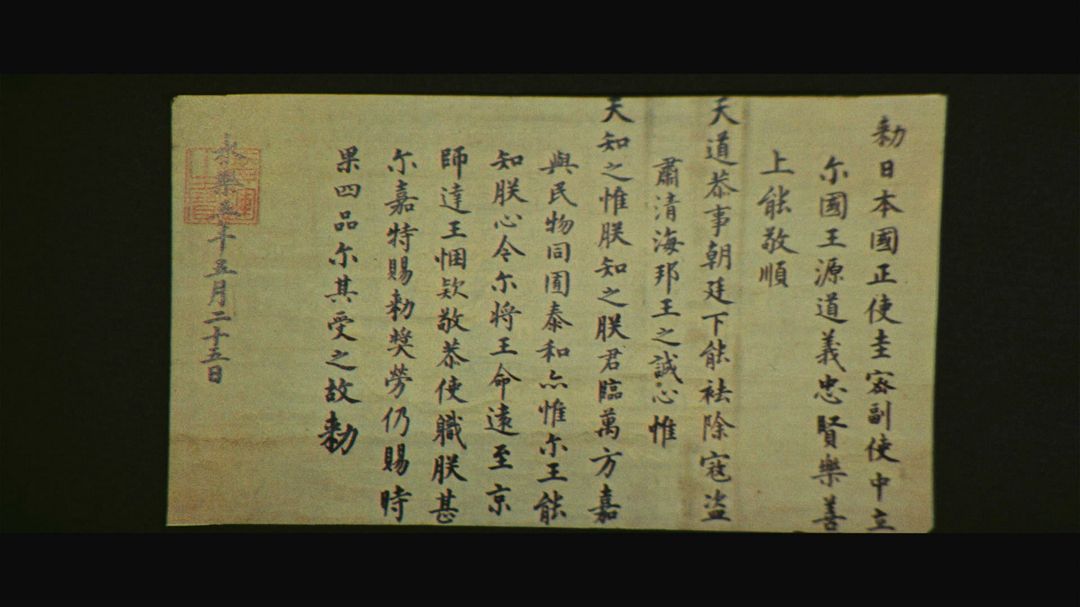 勅日本國正使圭密副使中立
尓國王源道義忠賢樂善
上能敬順
天道恭事朝廷下能祛除寇盜
肅清海邦王之誠心惟
天知之惟朕知之朕君臨萬方嘉
與民物同囿泰和亦惟尓王能
知朕心今尓將王命遠至京
師達王悃欵敬恭使職朕甚
尓嘉特賜勅獎勞仍賜時
果四品尓其受之故勅
永樂五年五月二十五日